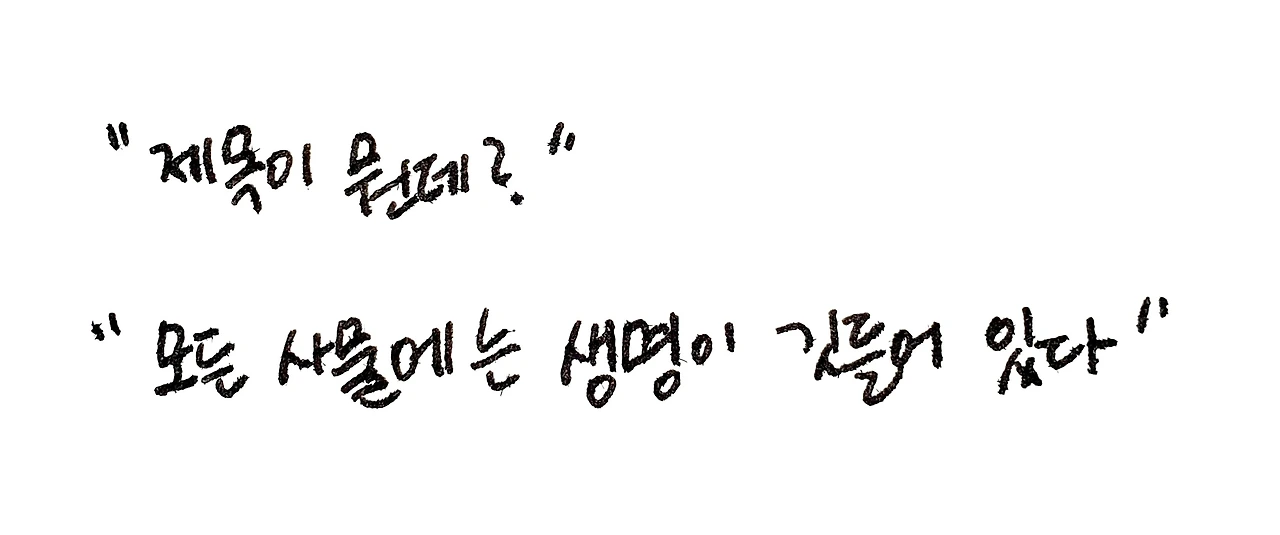 "제목이 뭔데?"
"모든 사물에는 생명이 깃들어 있다"